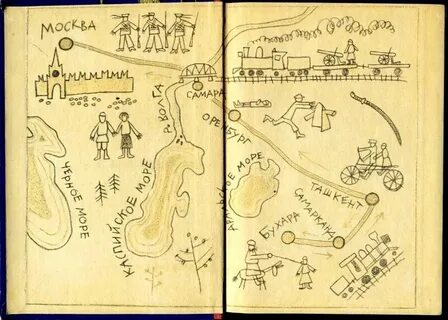 МОСКВА
САМАРА
Р. ВОЛГА
ОРЕНБУРГ
ЧЕРНОЕ МОРЕ
КАСПИЙСКОЕ МОРЕ
АРАЛЬСКОЕ МОРЕ
ТАШКЕНТ
САМАРКАНД
БУХАРА